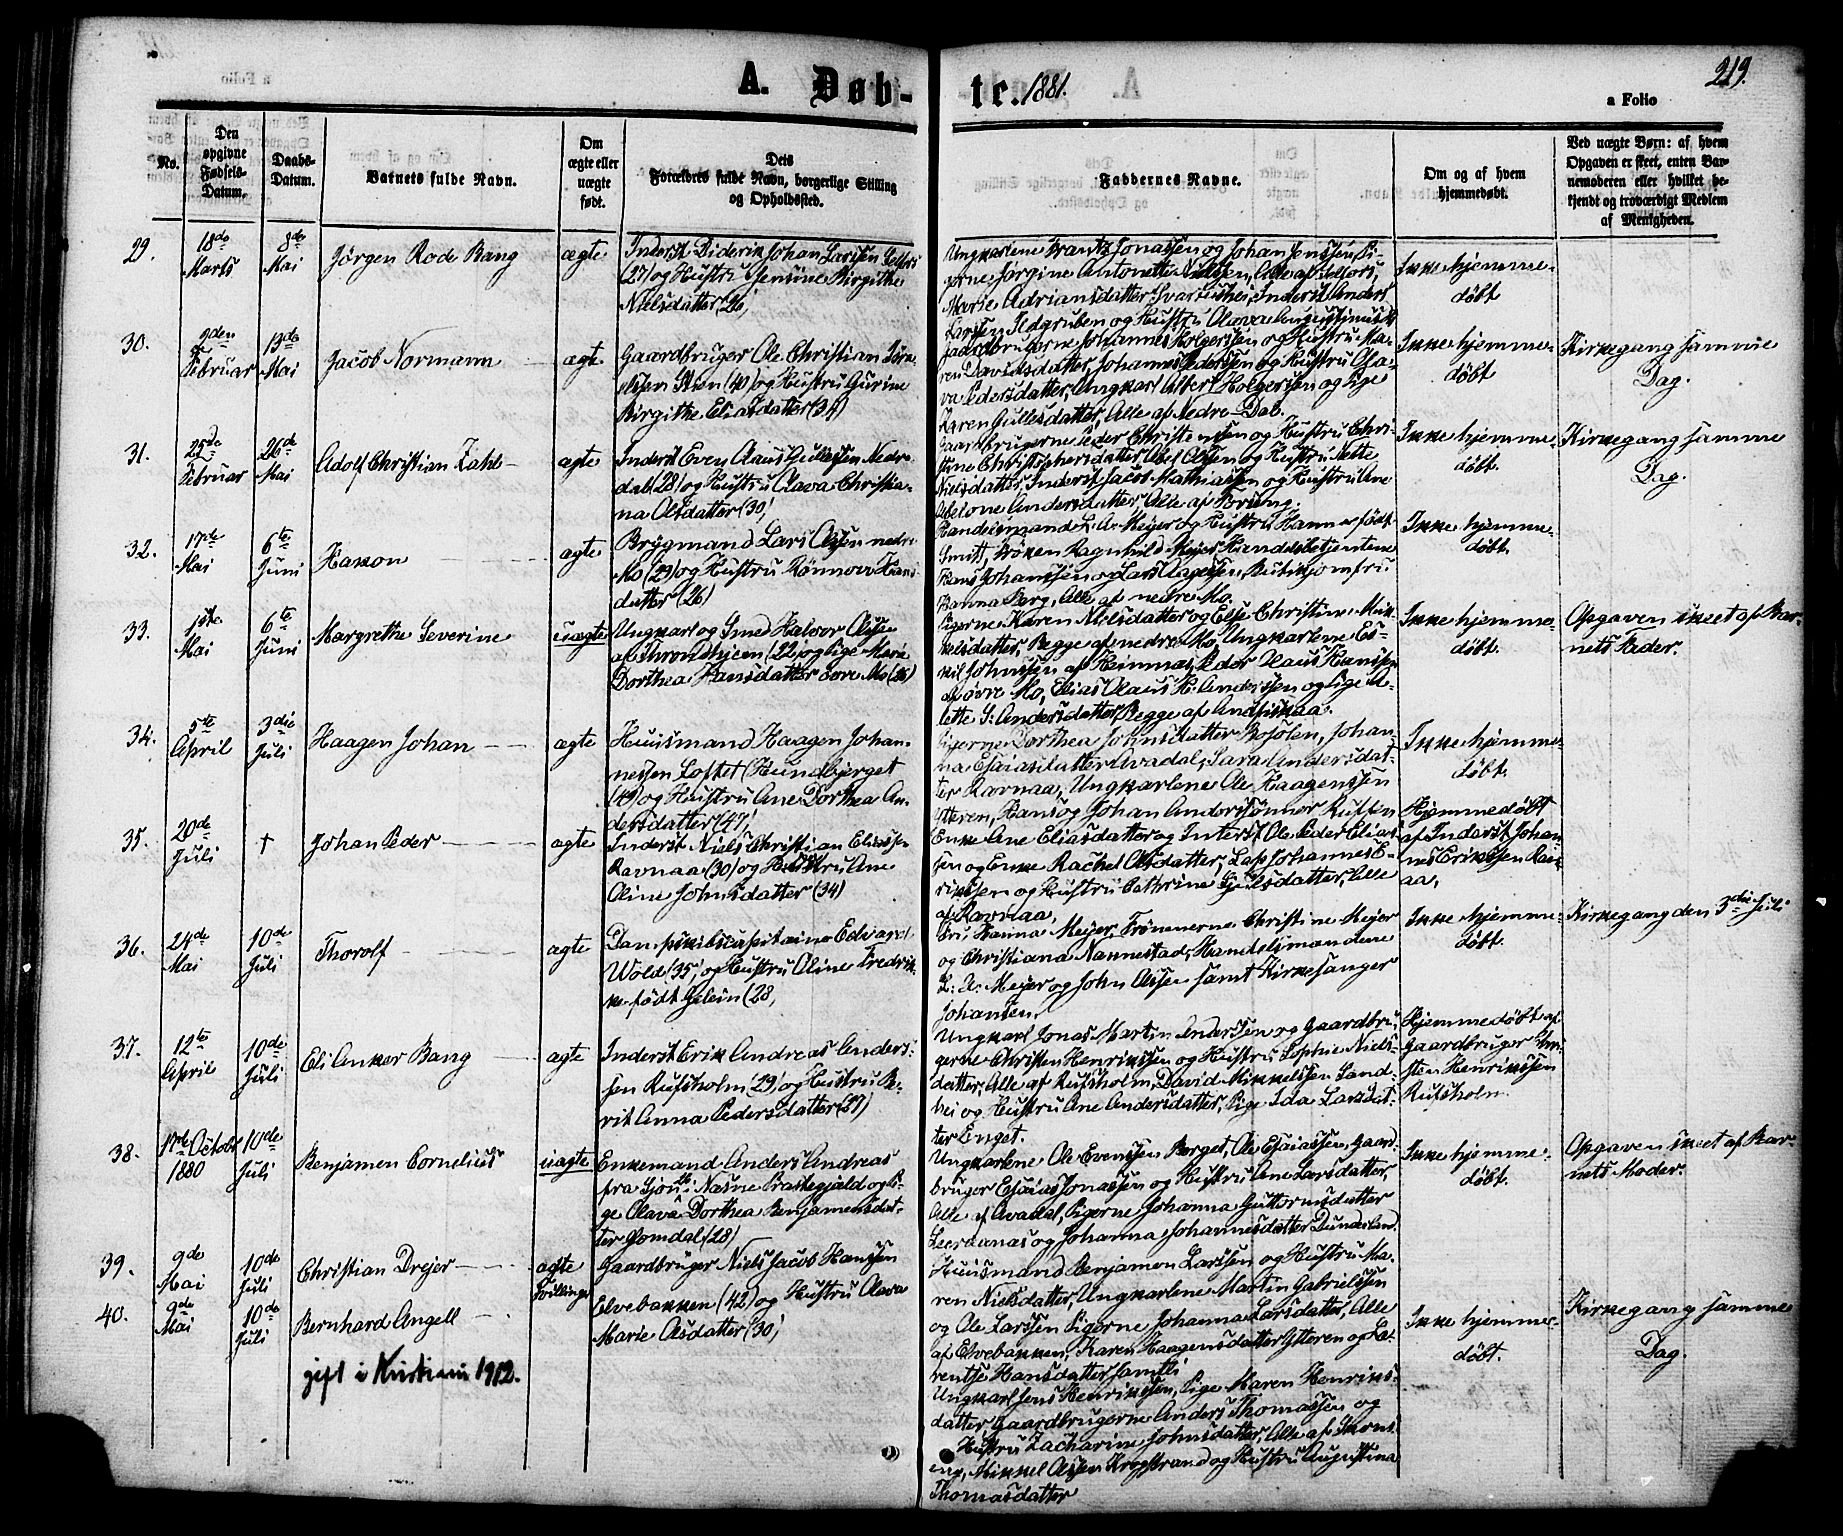 A. Døb-
te. 1881.
219.
a Folio
No.
Den opgivne Fødsels-Datum.
Daabs-Datum.
Barnets fulde Navn.
Om ægte eller uægte født.
Dets Forældres fulde Navn, borgerlige Stilling og Opholdssted.
Faddernes Navne.
Om og af hvem hjemmedøbt.
Ved uægte Børn: af hvem Opgaven er skeet, enten Barnemoderen eller hvilket bekjendt og troværdigt Medlem af Menigheden.
29.
18de Marts
8de Mai
Jørgen Rode Bang
ægte
Inderst Diderik Johan Larssen
(27) og Hustru Jensine Birgithe
Nielsdatter (26)
Ungkarlene Frantz Jonassen og Johan Jenssen, Pi-
gerne Jørgine Antonette Nilssen, Alle af
Marie Adriansdatter Svartishei, Inderst Anders
Larssen Ildgruben og Hustru Olava
Ikke hjemme-
døbt
30.
Februar
13de Mai
Jacob Normann
ægte
Gaardbruger Ole Christian
(40) og Hustru Gurine
Birgithe Eliasdatter (34)
Gaardbrugerne Johannes Holgerssen og Hustru Ma-
ren Davidsdatter, Johannes Pederssen og Hustru Ola-
va Pedersdatter, Ungkarl Albert Holgersen og Pige
Karen Gullesdatter, Alle af Nedre-Dal.
Ikke hjemme-
døbt
Kirkegang samme
Dag.
31.
25de Februar
26de Mai
Adolf Christian Zahl
ægte
Inderst Even Olaus Gullessen Nedre-
dal (28) og Hustru Olava Christia-
na Olsdatter (30)
Gaardbrugerne Peder Christensen og Hustru Chri-
stine Christophersdatter, Abel Olssen og Hustru Nette
Nielsdatter, Inderst Jacob Mathiassen og Hustru Ane
Abelone Andersdatter, Alle af
Ikke hjemme-
døbt.
Kirkegang samme
Dag.
32.
17de Mai
6te Juni
Hakon
ægte
Bygmand Lars Olssen nedre
Mo (29) og Hustru Rønnow Hans-
datter (26)
Handelsmand L. A. Meyer og Hustru Hanna født
Smitt, Frøken Ragnhild Meyer, Handelsbetjentene
Hans Johanssen og Lars Aagessen, Butikjomfru
Hanna Berg, Alle af nedre Mo.
Ikke hjemme-
døbt.
33.
1ste Mai
6te Juni
Margrethe Severine
uægte
Ungkarl og Smed Halvor Olssen
af Throndhjem (22) og Pige Maria
Dorthea Hansdatter øvre Mo (26)
Pigerne Karen Nielsdatter og Else Christine Mik-
kelsdatter, Begge af nedre Mo, Ungkarlene Es-
kil Johnssen af Heimnæs, Peder Olaus Hanssen
af øvre Mo, Elias Olaus H. Anderssen og Pige A-
lette S. Andersdatter, Begge af Andfiskaa.
Ikke hjemme-
døbt.
Opgaven skeet af Bar-
nets Fader.
34.
5te April
3die Juli
Haagen Johan
ægte
Huusmand Haagen Johan-
nessen Loftet (Hundbjerget
(49) og Hustru Ane Dorthea An-
dersdatter (47)
Pigerne Dorthea Johnsdatter Bosolen, Johan-
na Esaiasdatter Avadal, Sara Andersdat-
ter Ravnaa, Ungkarlene Ole Haagenssen
Ytteren, Hans og Johan Anderssønner
Ikke hjemme-
døbt.
35.
20de Juli
†
Johan Peder
ægte
Inderst Niels Christian Eliassen
Ravnaa (30) og Hustru Ane
Oline Johnsdatter (34)
Enke Ane Eliasdatter og Inderst Ole Peder Elias-
sen og Enke Rachel Olsdatter, Lap Johannes E-
rikssen og Hustru Cathrine Sjulsdatter, Alle
af Ravnaa.
Hjemmedøbt
af Inderst Johan-
nes Erikssen Ravn-
aa.
36.
24de Mai
10de Juli
Thorolf
ægte
Dampskibscapitaine Edvard
Wold (35) og Hustru Oline Fredrik-
ke født (28)
Fru Hanna Meyer, Frøknerne Christine Meyer
og Christiana Nannestad, Handelsmændene
L. A. Meyer og John Olssen samt Kirkesanger
Johansen.
Ikke hjemme-
døbt.
Kirkegang den 3die Juli
37.
12te April
10de Juli
Eli Anker Bang
ægte
Inderst Erik Andreas Anders-
sen Rufsholm (29) og Hustru Be-
rit Anna Pedersdatter (27)
Ungkarl Jonas Martin Anderssen og Gaardbru-
gerne Christen Henrikssen og Hustru Sophie Niels-
datter, Alle af Rufsholm, David Mikkelssen Land-
hei og Hustru Ane Andersdatter, Pige Ida Larsdat-
ter Enget.
Hjemmedøbt af
Gaardbruger Chri-
sten Henrikssen
Rufsholm.
38.
17de October 1880
10de Juli
Benjamen Cornelius
uægte
Enkemand Anders Andreas
fra Sjona i Næsne Præstegjæld og Pi-
ge Olava Dorthea Benjamensdat-
ter Gomdal (28)
Ungkarlene Ole Evenssen Berget, Ole Esaiassen, Gaard-
bruger Esaias Jonassen og Hustru Ane Larsdatter,
Alle af Avadal, Pigerne Johanna Guttormsdatter
og Johanna Johannesdatter Dunderland.
Ikke hjemme-
døbt.
Opgaven skeet af Bar-
nets Moder.
39.
9de Mai
10de Juli
Christian Drejer
ægte
Tvillinge
Gaardbruger Niels Jacob Hanssen
Elvebakken (42) og Hustru Olava
Marie Olsdatter (30)
Huusmand Benjamen Larssen og Hustru Ma-
ren Nielsdatter, Ungkarlene Martin Gabrielssen
og Ole Larssen, Pigerne Johanna Larsdatter, Alle
af Elvebakken, Karen Haagensdatter Ytteren og La-
rentse Hansdatter
40.
9de Mai
10de Juli
Bernhard Angell
gift i Kristiania 1912.
Ungkarl Jens Henrikssen, Pige Maren Henriks-
datter, Gaardbrugerne Anders Thomassen og
Hustru Zacharine Johnsdatter, Alle af Skons-
eng, Mikkel Olssen Krogstrand og Hustru Augustina
Thomasdatter
Ikke hjemme-
døbt.
Kirkegang samme
Dag.